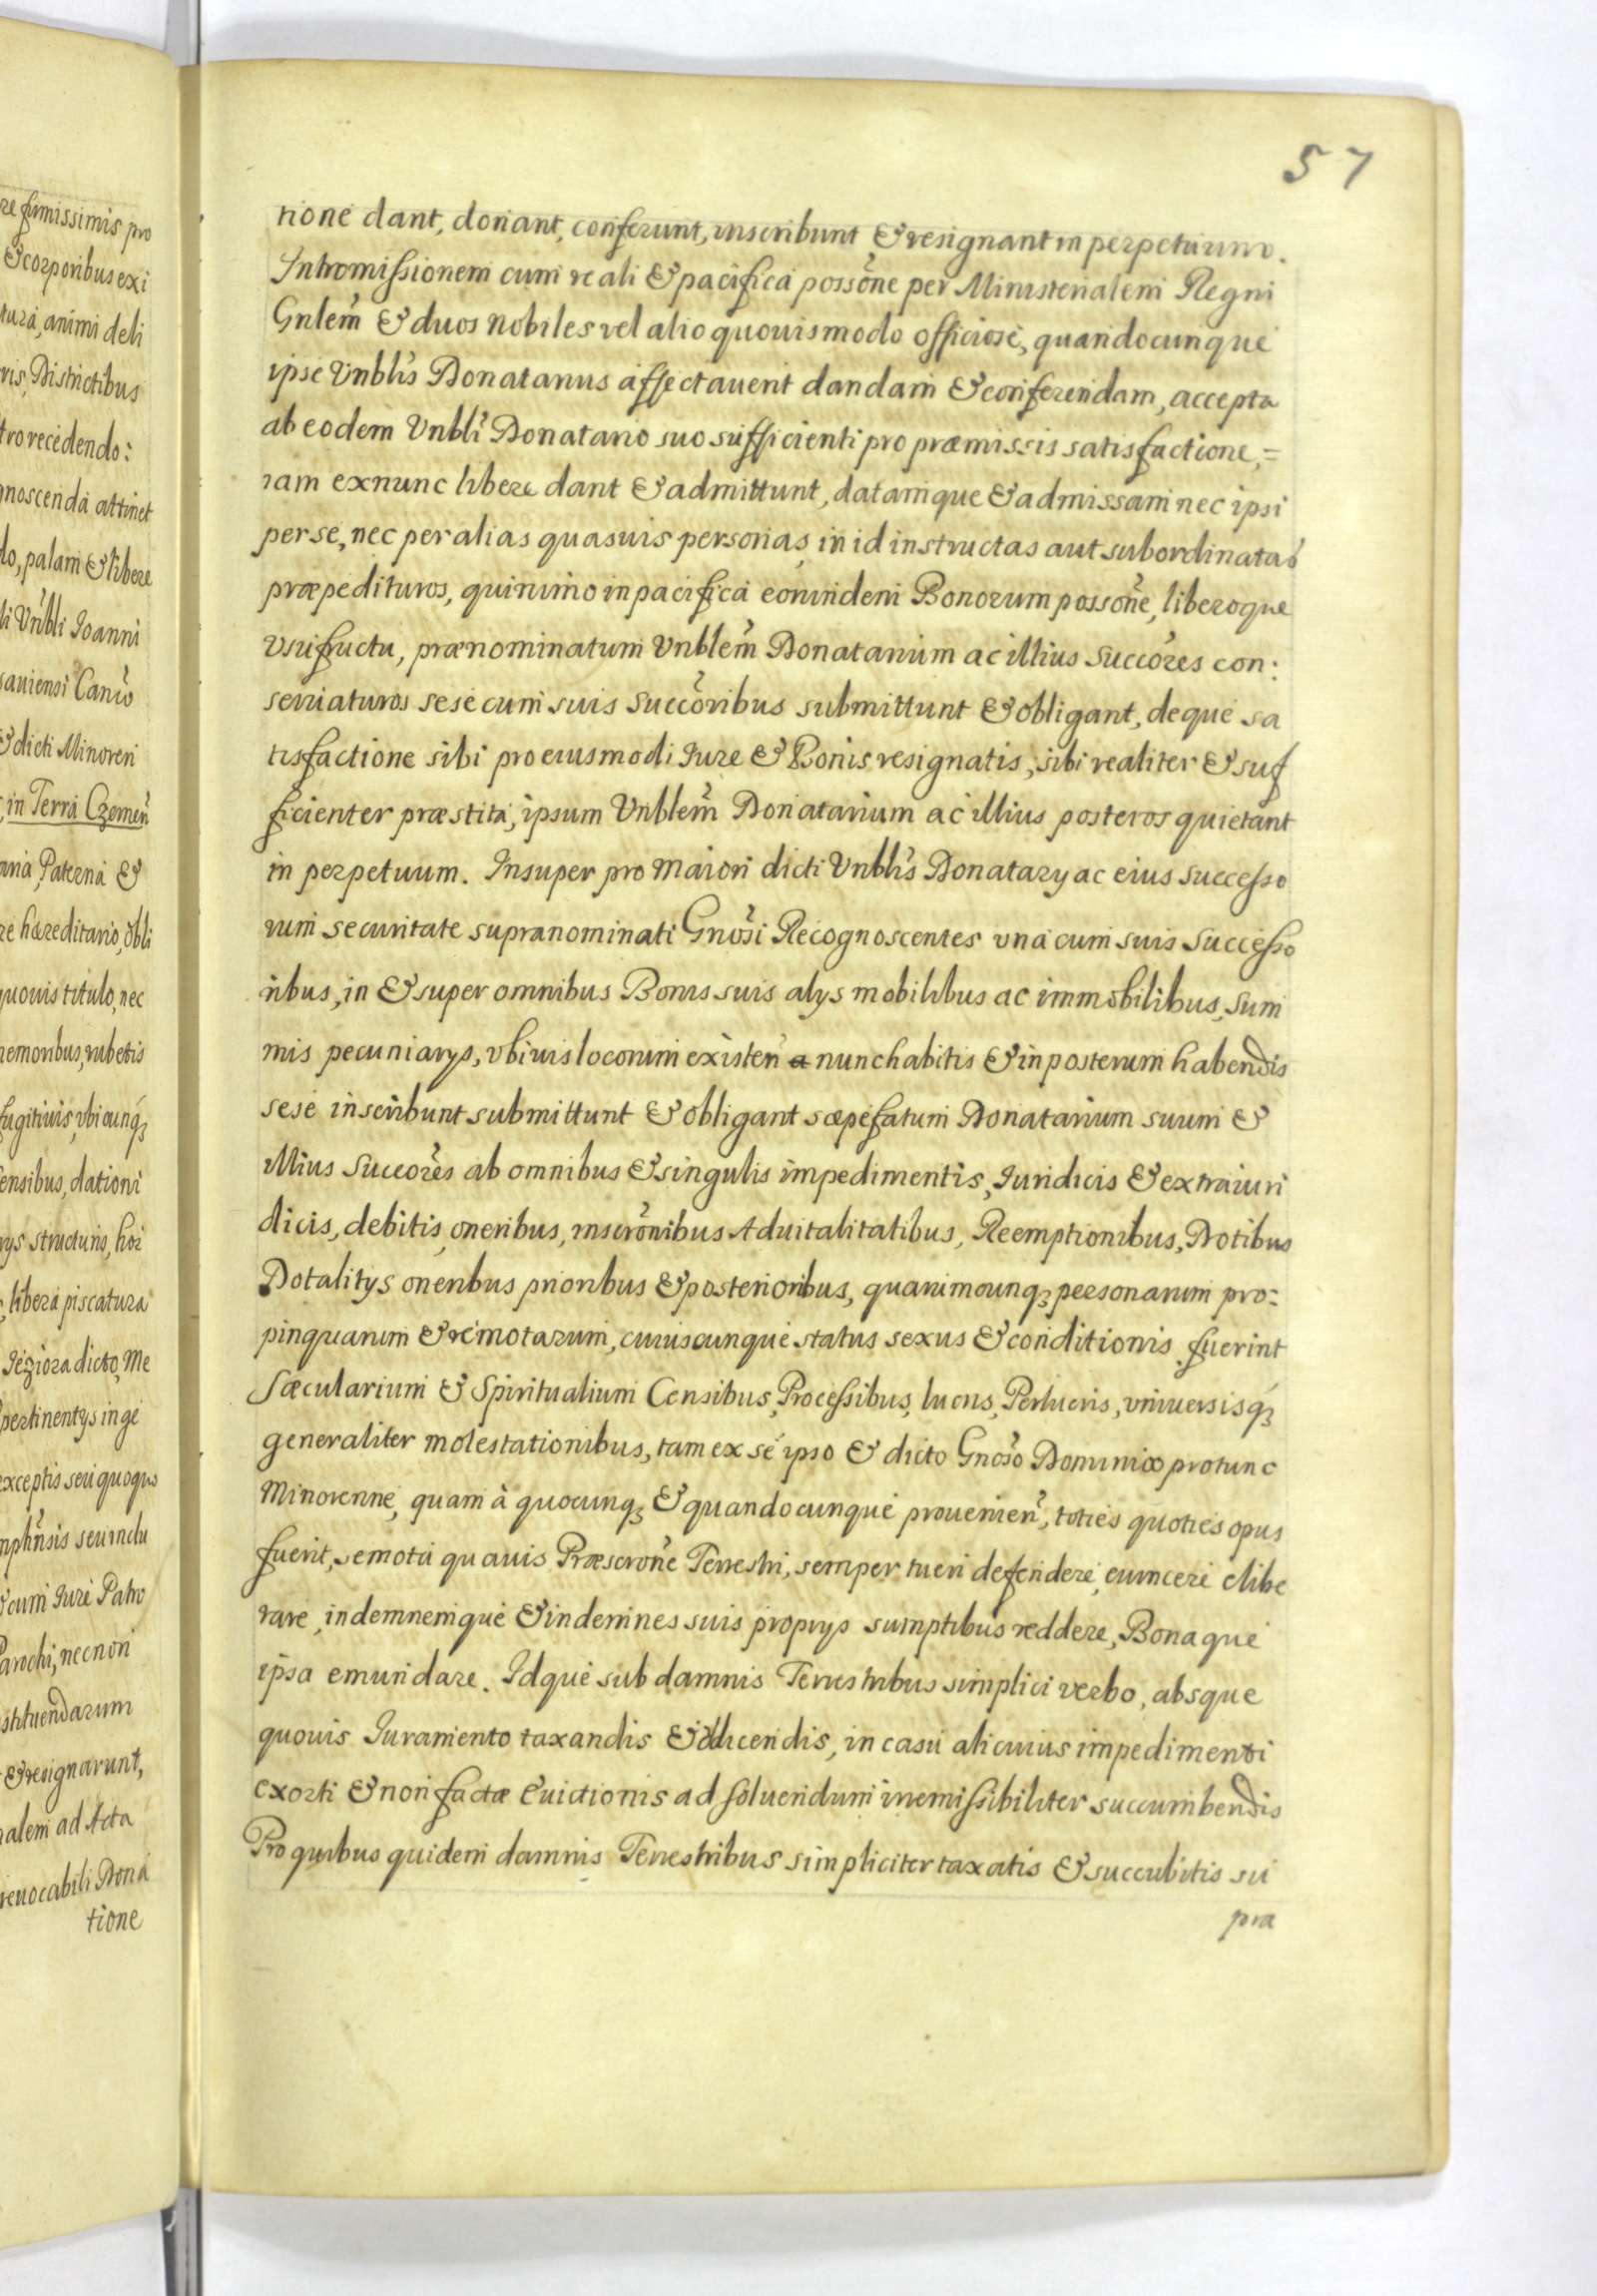 57
tione dant, donant, conferunt, inscribunt & resignant in perpetuum.
Intromissionem cum reali & pacifica possõne per Ministerialem Regni
Gnlem̃ & duos Nobiles vel alio quouismodo officiose, quandocunque
ipse Vnblĩs Donatarius affectauerit dandam & conferendam, accepta
ab eodem Vnblĩ Donatario suo sufficienti pro præmissis satisfactione,=
iam exnunc libere dant & admittunt, datamque & admissam nec ipsi
per se, nec per alias quasuis personas, in id instructas aut subordinatas
præpedituros, quinimo in pacifica eorundem Bonorum possõne, liberoque
vsufructu, prænominatum Vnblem̃ Donatarium ac illius Succõres con:
seruaturos sese cum suis Succõribus submittunt & obligant, deque sa
tisfactione sibi pro eiusmodi Iure & Bonis resignatis, sibi realiter & suf
ficienter præstita, ipsum Vnblem̃ Donatarium ac illius posteros quietant
in perpetuum. Insuper pro maiori dicti Vnblĩs Donatary ac eius Successo
rum securitate supranominati Gnõsi Recognoscentes vna cum suis Successo
ribus, in & super omnibus Bonis suis alys mobilibus ac immobilibus, Sum
mis pecuniarys, vbiuis locorum existeñ nunc habitis & in posterum habendis
sese inscribunt submittunt & obligant sæpefatum Donatarium suum &
illius Succõres ab omnibus & singulis impedimentis, Iuridicis & extraiuri
dicis, debitis, oneribus, inscrõnibus Aduitalitatibus, Reemptionibus, Dotibus
Dotalitys oneribus prioribus & posterioribus, quarumcunq; personarum pro:
pinquarum & remotarum, cuiuscunque status sexus & conditionis fuerint
Sæcularium & Spiritualium Censibus, Processibus, lucris, Perlucris, vniuersisq;
generaliter molestationibus, tam ex se ipso & dicto Gnõso Dominico protunc
Minorenne, quam à quocunq; & quandocunque prouenieñ, toties quoties opus
fuerit, semota quauis Præscrõne Terrestri, semper tueri defendere, euincere elibe
rare, indemnemque & indemnes suis proprys sumptibus reddere, Bonaque
ipsa emundare. Idque sub damnis Terrestribus simplici verbo, absque
quouis Iuramento taxandis & dicendis, in casu alicuius impedimenti
exorti & non factæ Euictionis ad soluendum irremissibiliter succumbendis
Pro quibus quidem damnis Terrestribus simpliciter taxatis & succubitis su
pra
re firmissimis pro
& corporibus exi
tura, animi deli
ris, Districtibus
tro recedendo:
gnoscenda attinet
do, palam & libere
li Vnblĩ Ioanni
& dicti Minoren
in Terra Czemeñ
nia, Paterna &
re hæreditario, obli
quouis titulo, nec
nemoribus, rubetis
fugitiuis, vbicunq;
ensibus, dationi
rys structuris, hor
, libera piscatura
Ieziora dicto, Me
pertinentys in ge
exceptis seu quoquo
seu inclu
cum Iure Patro
Parochi, necnon
stituendarum
& resignarunt,
alem ad Acta
reuocabili Dona
tione